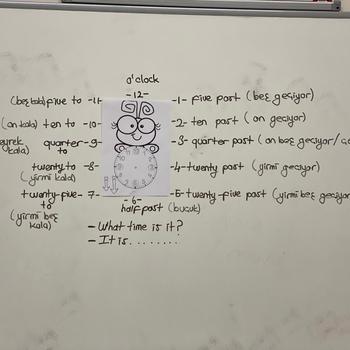 o'clock
-12-
(beş kala) five to -11- -1- five past (beş geçiyor)
(on kala) ten to -10- -2- ten past (on geçiyor)
eyrek kala) quarter to -9- -3- quarter past (on beş geçiyor/
twenty to -8- -4- twenty past (yirmi geçiyor)
(yirmi kala)
twenty-five to -7- -5- twenty-five past (yirmi beş geçiyor
(yirmi beş kala)
-6-
half past (buçuk)
- What time is it?
- It is........